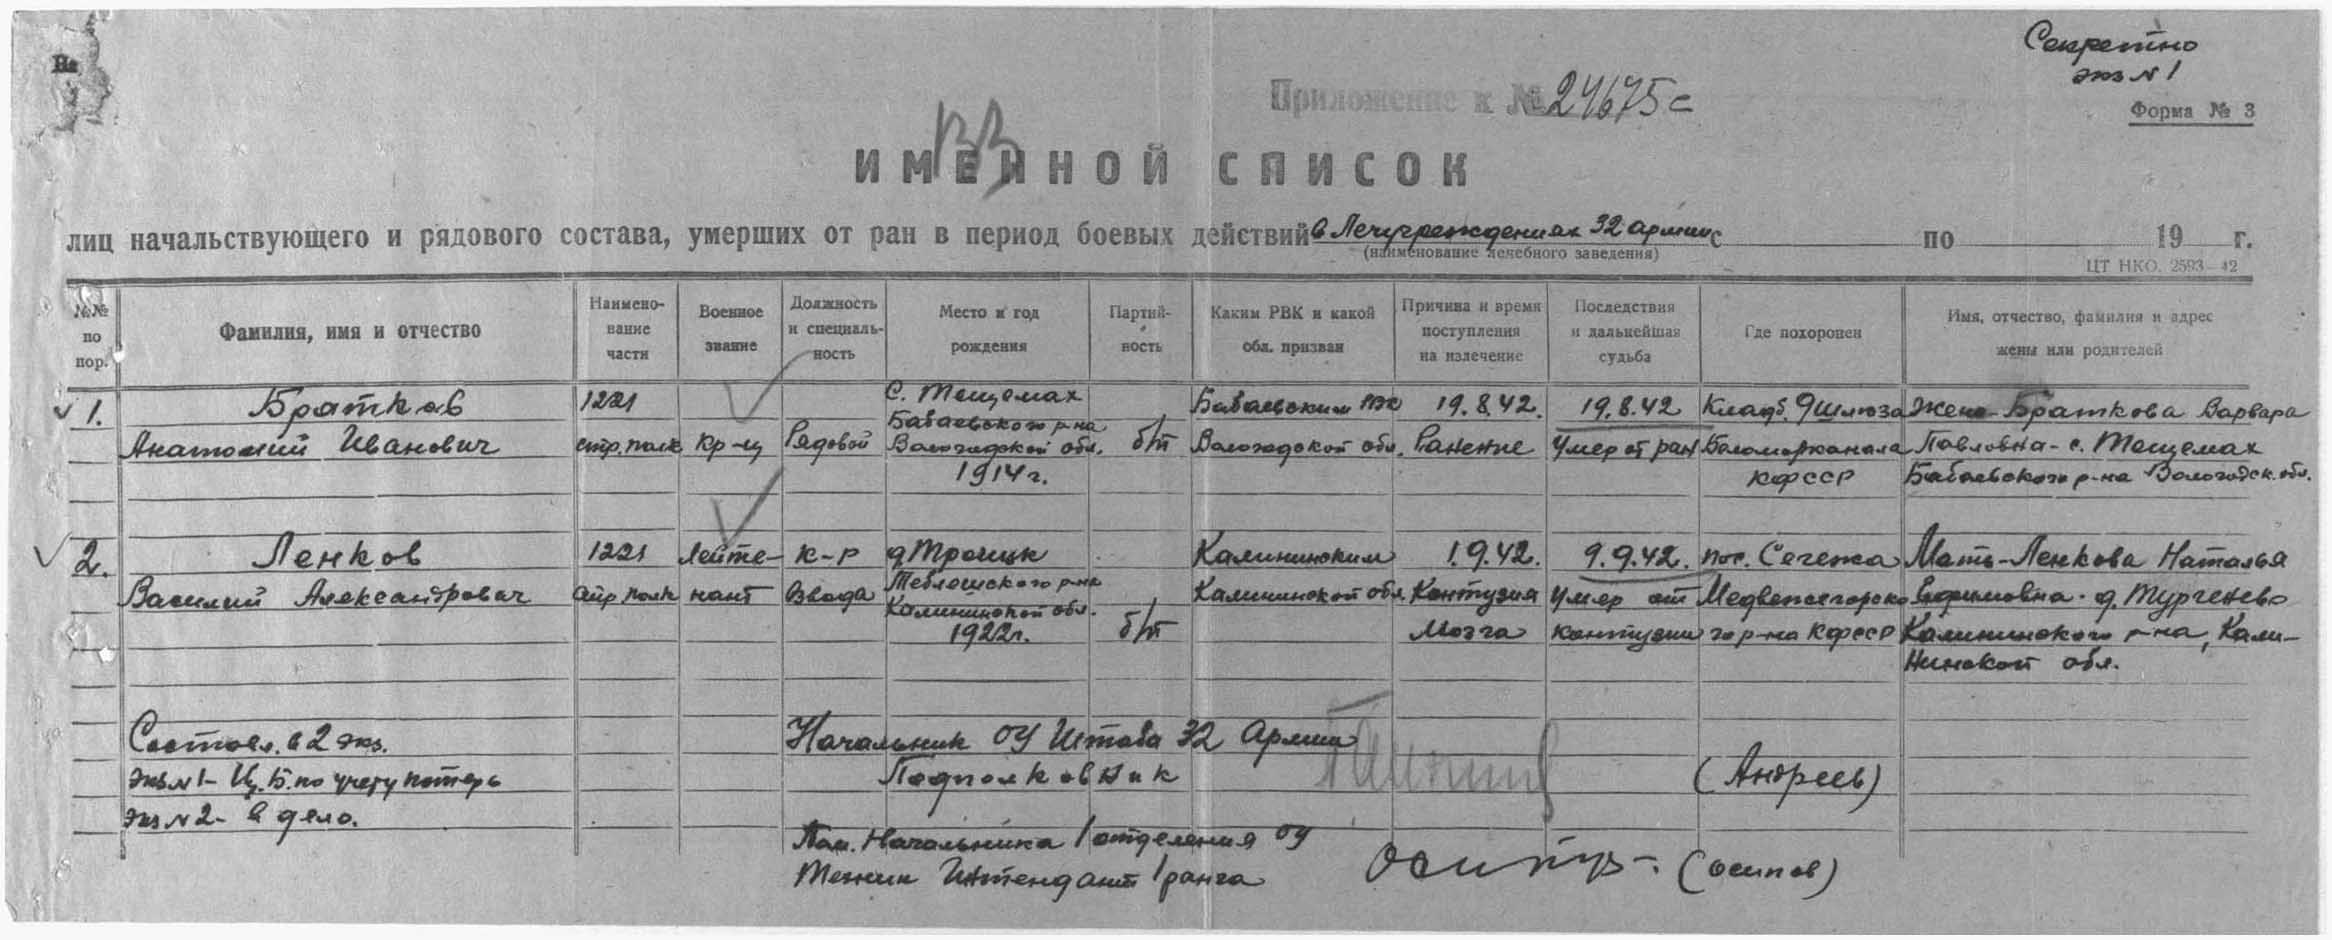 Секретно
экз № 1
Приложение к № 24675с
Форма № 3
ИМЕННОЙ СПИСОК
лиц начальствующего и рядового состава, умерших от ран в период боевых действий в Лечучреждениях 32 армии с по 19 г.
(наименование лечебного заведения)
ЦТ НКО. 2593—42
№№ по пор.
Фамилия, имя и отчество
Наимено-
вание
части
Военное
звание
Должность
и специаль-
ность
Место и год
рождения
Партий-
ность
Каким РВК и какой
обл. призван
Причина и время
поступления
на излечение
Последствия
и дальнейшая
судьба
Где похоронен
Имя, отчество, фамилия и адрес
жены или родителей
1.
Братков
Анатолий Иванович
1221
стр. полк
Кр-ц
Рядовой
с. Тещемах
Бабаевского р-на
Вологодской обл.
1914 г.
б/п
Бабаевским РВК
Вологодской обл.
19.8.42.
Ранение
19.8.42
Умер от ран
Кладб. 9 шлюза
Беломорканала
КФССР
Жена - Браткова Варвара
Павловна - с. Тещемах
Бабаевского р-на Вологодск. обл.
2.
Ленков
Василий Александрович
1221
стр. полк
Лейте-
нант
к-р
взвода
д. Троицк
Калининской обл.
1922 г.
б/п
Калининским
Калининской обл.
1.9.42.
Контузия
мозга
9.9.42.
Умер от
контузии
пос. Сегежа
Медвежегорско
го р-на КФССР
Мать - Ленкова Наталья
Ефимовна - д. Тургенево
Калининского р-на, Кали-
нинской обл.
Составл. в 2 экз.
экз № 1 - Ц. Б. по учету потерь
экз № 2 - в дело.
Начальник ОУ Штаба 32 Армии
Подполковник
(Андреев)
Пом. Начальника 1 отделения ОУ
Техник Интендант 1 ранга
(Осипов)